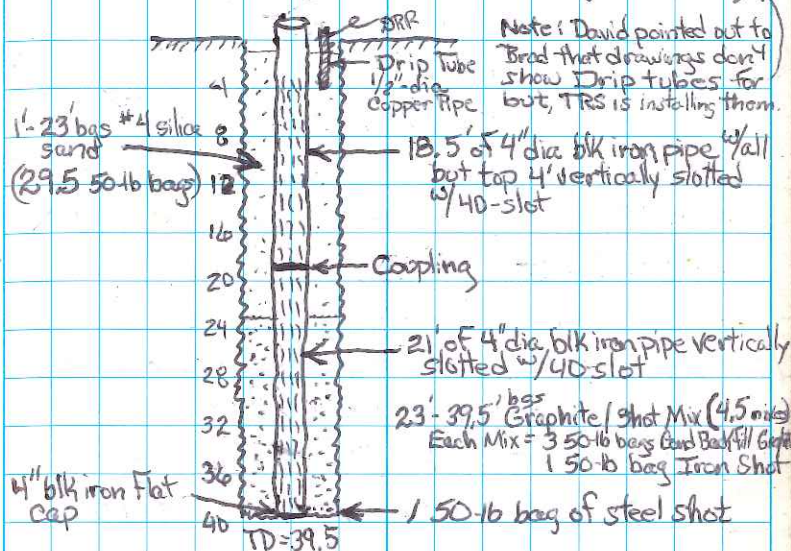 DRR
Note: David pointed out to
Brad that drawings don't
show Drip tubes for
but, TRS is installing them.
Drip Tube
1/2"-dia
Copper Pipe
4
1'-23' bgs #4 silica
sand
(29.5 50-lb bags)
8
12
16
20
24
28
32
36
40
18.5' of 4" dia blk iron pipe w/all
but top 4' vertically slotted
w/40-slot
Coupling
21' of 4" dia blk iron pipe vertically
slotted w/40-slot
23'-39.5' bgs Graphite/Shot Mix (4.5 mixes)
Each Mix = 3 50-lb bags Backfill
1 50-lb bag Iron Shot
4" blk iron Flat
cap
1 50-lb bag of steel shot
TD=39.5